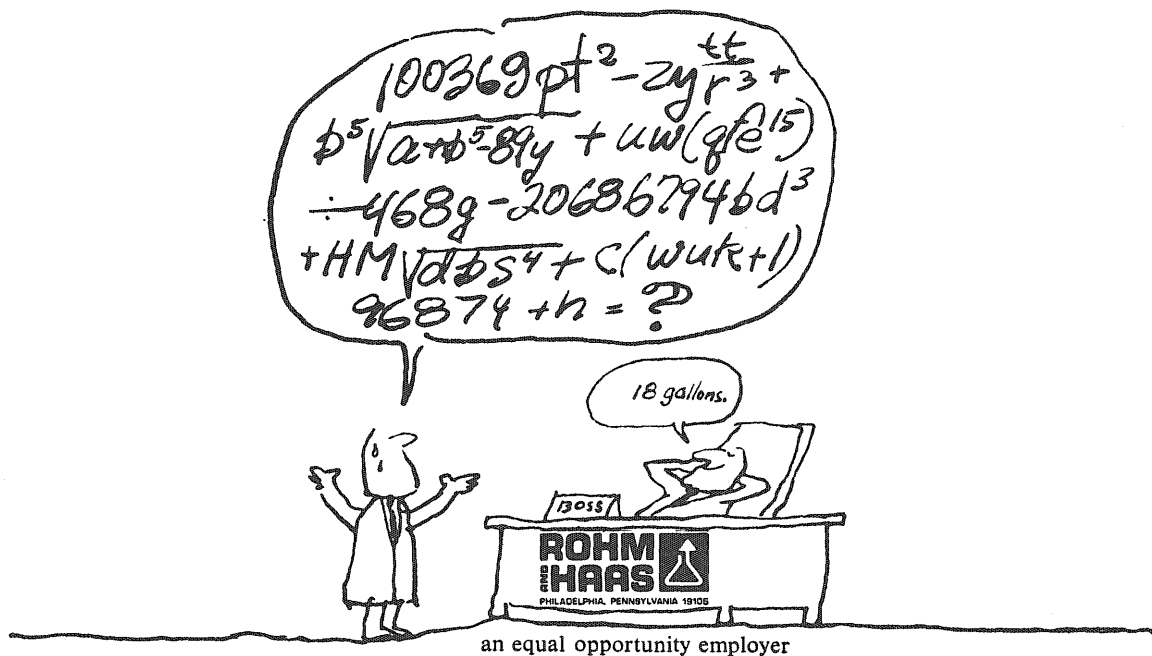 100369pt² - 2y tt/r³ +
b⁵√a+b⁵-89y + uw(qfe¹⁵)
÷468g - 20686794bd³
+HM√dbs⁴ + c(wuk+1)
96874 + n = ?
18 gallons.
BOSS
ROHM
AND HAAS
PHILADELPHIA, PENNSYLVANIA 19105
an equal opportunity employer